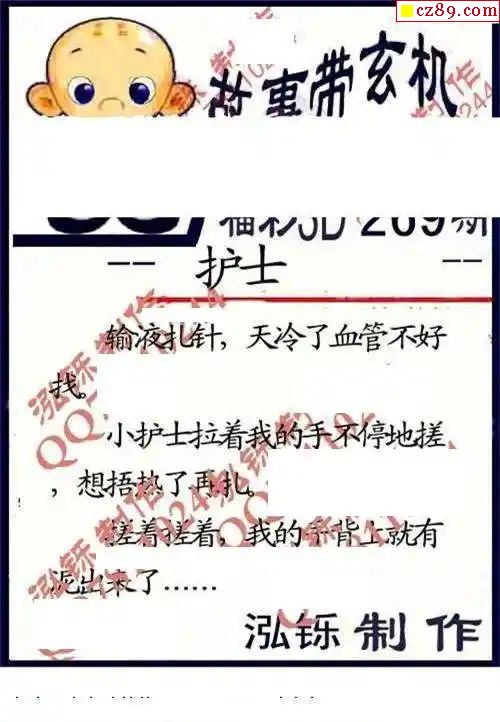 cz89.com
故事带玄机
福彩3D 269期
-- 护士 --
输液扎针，天冷了血管不好
找。
小护士拉着我的手不停地搓
，想捂热了再扎。
搓着搓着，我的手背上就有
泥出来了……
泓铄制作